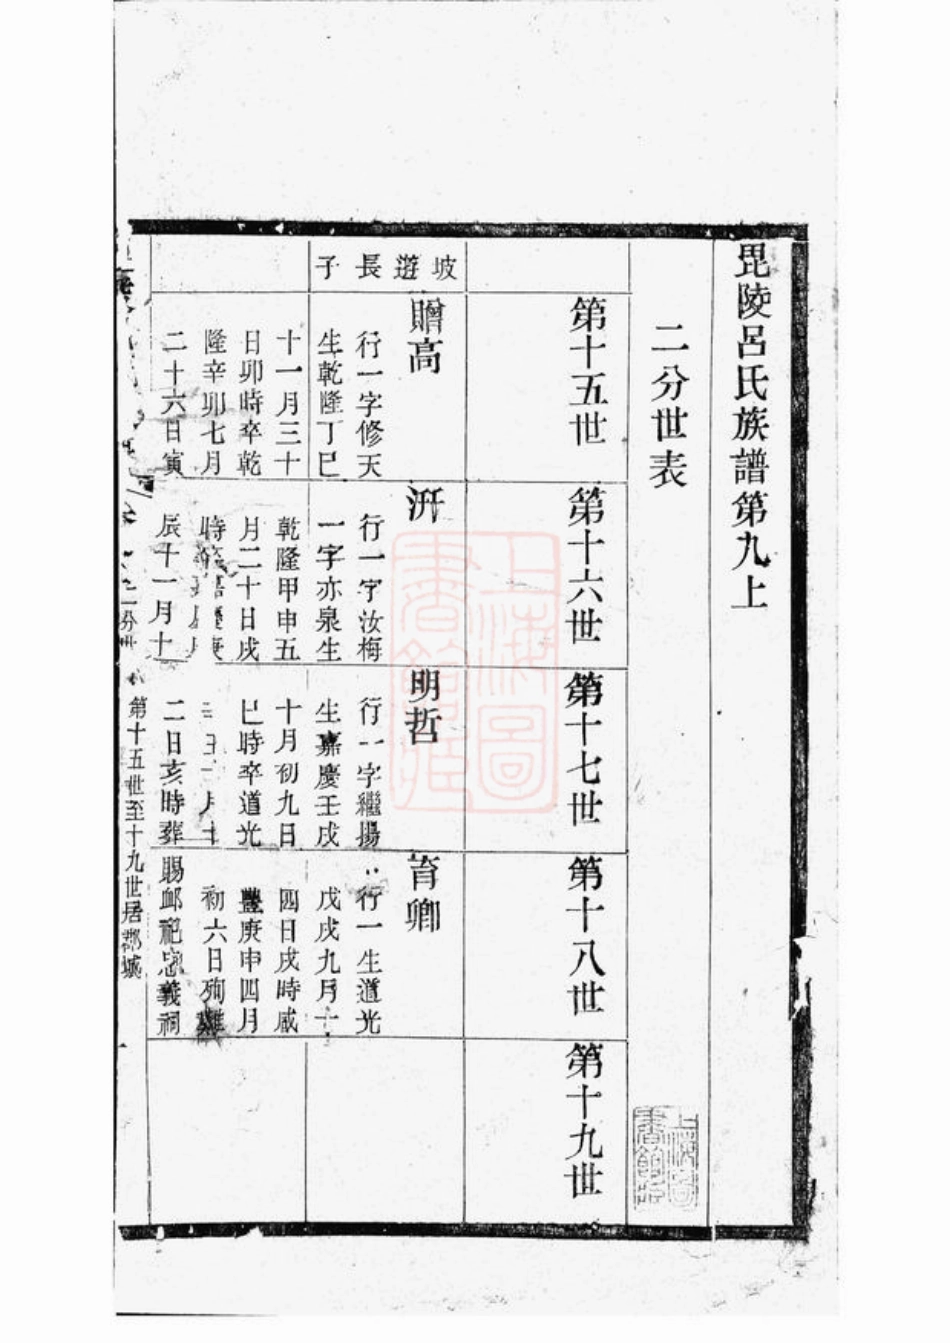 毘陵呂氏族譜第九上
二分世表
第十五世
第十六世
第十七世
第十八世
第十九世
坡遊長子
贈高
行一字修天
生乾隆丁巳
十一月三十
日卯時卒乾
隆辛卯七月
二十六日寅
汧
行一字汝梅
一字亦泉生
乾隆甲申五
月二十日戌
時
庚
辰十一月十
明哲
行一字繼揚
生嘉慶壬戌
十月初九日
巳時卒道光
月十
二日亥時葬
育卿
行一生道光
戊戌九月十
四日戌時咸
豐庚申四月
初六日殉難
賜卹祀忠義祠
二分世
第十五世至十九世居郡城
一
上海圖書館藏
上海圖書館藏